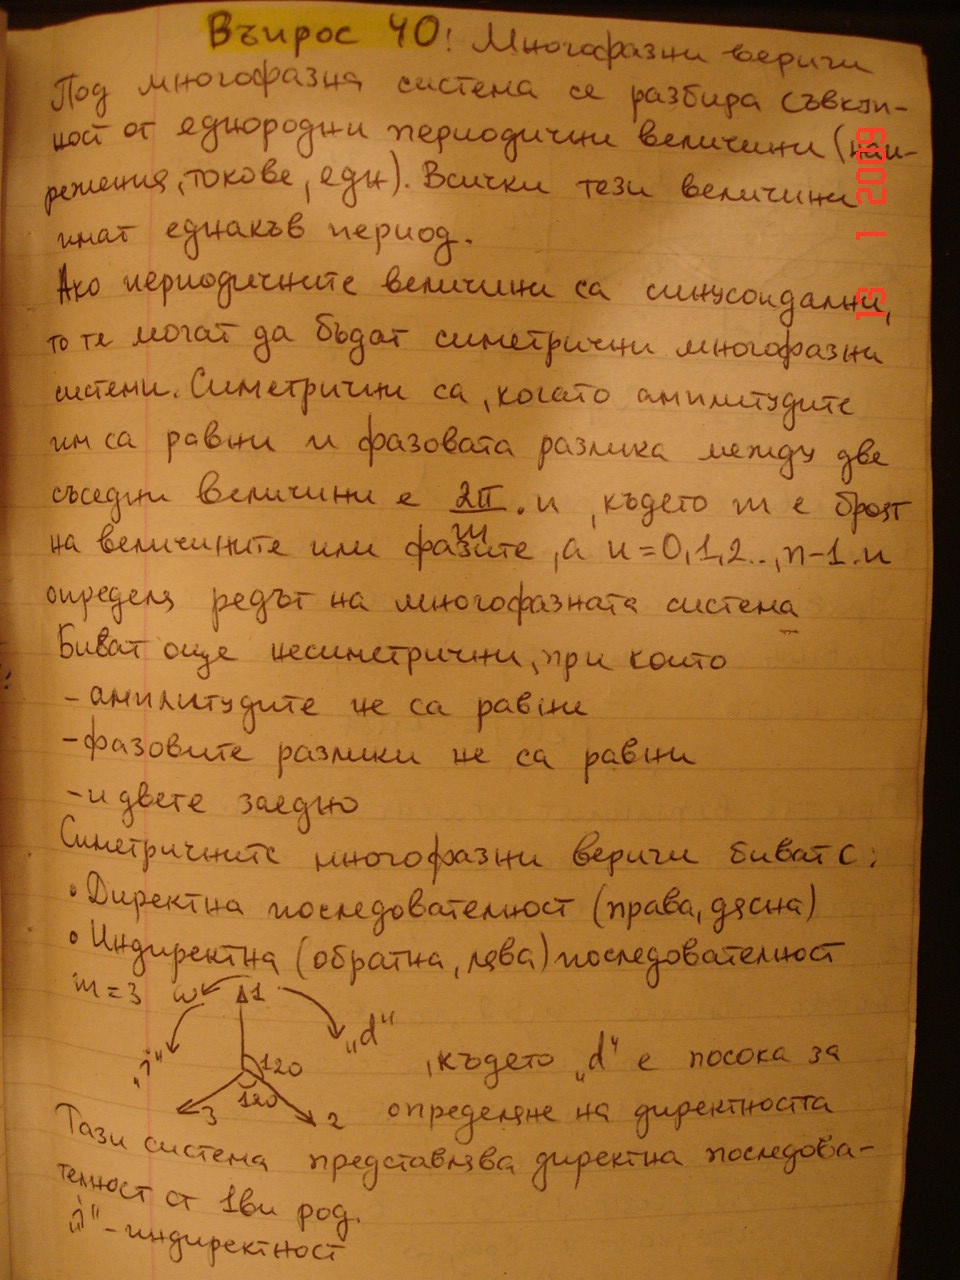 Въпрос 40: Многофазни вериги
Под многофазна система се разбира съвкуп-
ност от еднородни периодични величини (нап-
режения, токове, едн). Всички тези величини
имат еднакъв период.
Ако периодичните величини са синусоидални,
то те могат да бъдат симетрични многофазни
системи. Симетрични са, когато амплитудите
им са равни и фазовата разлика между две
съседни величини е 2π/m . n, където m е броят
на величините или фазите, а n=0,1,2..,n-1. n
определя редът на многофазната система
Биват още несиметрични, при които
- амплитудите не са равни
- фазовите разлики не са равни
- и двете заедно
Симетричните многофазни вериги биват с:
• Директна последователност (права, дясна)
• Индиректна (обратна, лява) последователност
m=3 ω 1
„i“ „d“
120
120
3 2
, където „d“ е посока за
определяне на директността
Тази система представлява директна последова-
телност от 1ви род.
„i“ - индиректност
13 1 2009